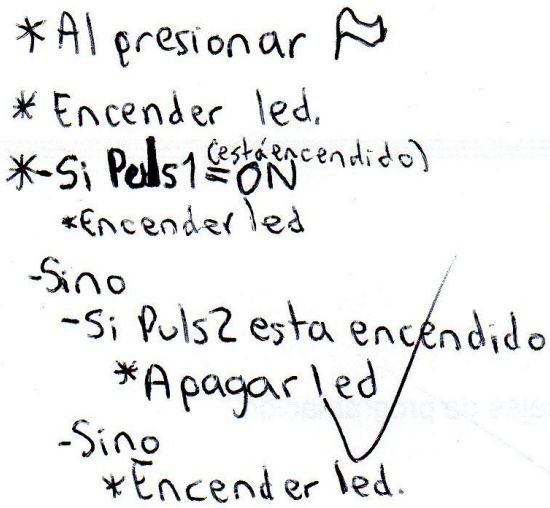 *Al presionar
* Encender led.
*-Si Puls1 = ON (está encendido)
*Encender led
-Sino
-Si Puls2 esta encendido
*Apagar led
-Sino
*Encender led.